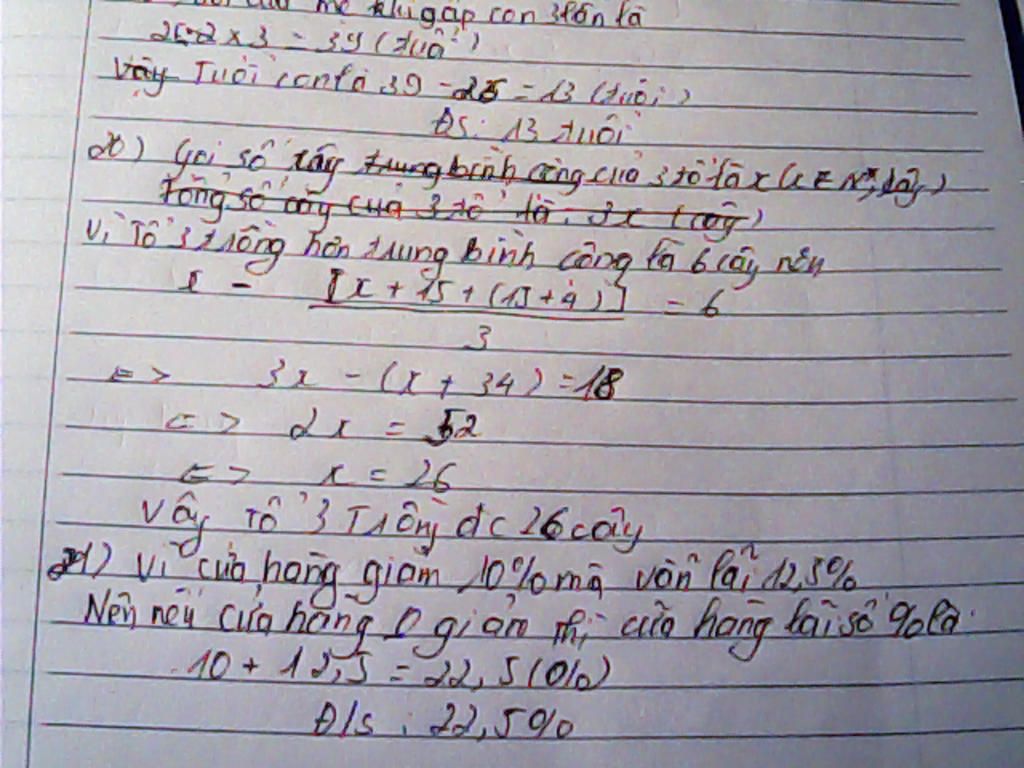 của mẹ khi gấp con 3 lần là
26:2 x 3 = 39 (tuổi)
Vậy Tuổi con là 39 - 26 = 13 (tuổi)
ĐS: 13 tuổi
20) Gọi số cây trung bình cộng của 3 tổ là x (x ∈ N*, cây)
tổng số cây của 3 tổ là. 3x (cây)
Vì Tổ 3 trồng hơn trung bình cộng là 6 cây nên
x - [x + 15 + (15 + 4)] / 3 = 6
<=> 3x - (x + 34) = 18
<=> 2x = 52
<=> x = 26
Vậy Tổ 3 Trồng đc 26 cây
21) Vì cửa hàng giảm 10% mà vẫn lãi 12,5%
Nên nếu cửa hàng 0 giảm thì cửa hàng lãi số % là.
10 + 12,5 = 22,5 (%)
Đ/s : 22,5%